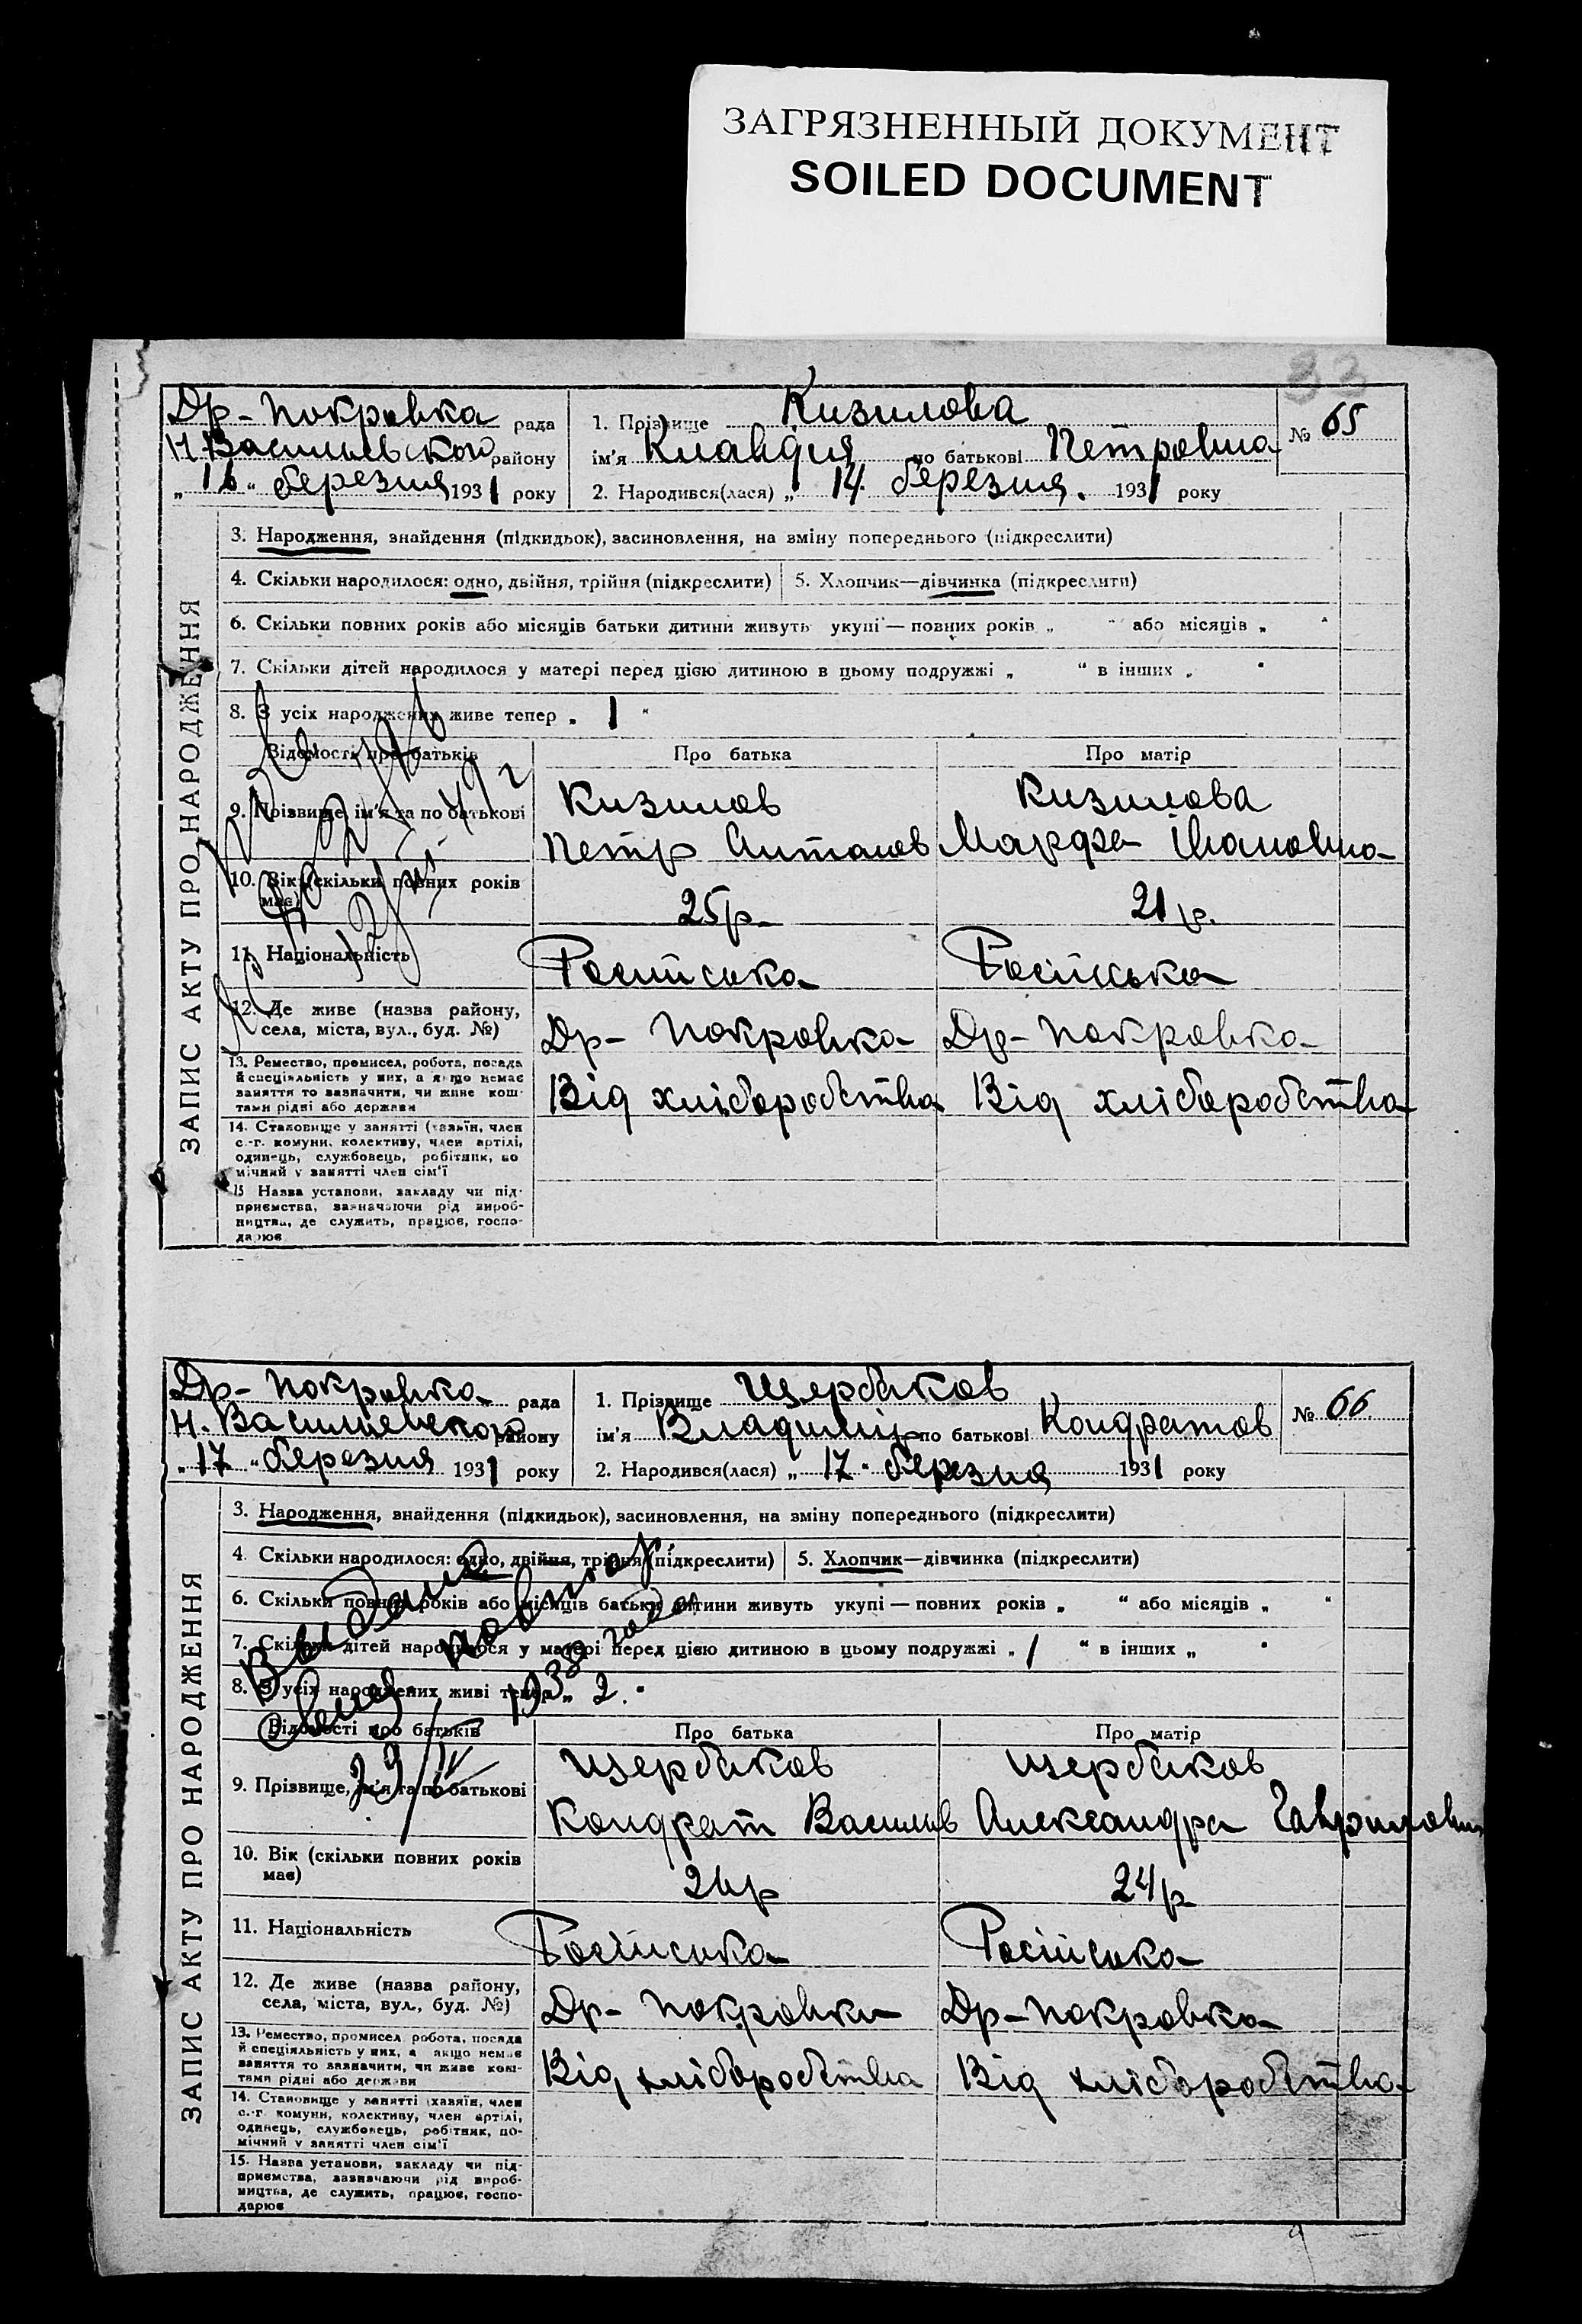 ЗАГРЯЗНЕННЫЙ ДОКУМЕНТ
SOILED DOCUMENT
33
Др-Покровка рада
Н.Васильевского району
„16“ березня 1931 року
1. Прізвище Кизилова
ім'я Клавдия по батькові Петровна
2. Народився(лася) „14. березня. 1931 року
№ 65
ЗАПИС АКТУ ПРО НАРОДЖЕННЯ
3. Народження, знайдення (підкидьок), засиновлення, на зміну попереднього (підкреслити)
4. Скільки народилося: одно, двійня, трійня (підкреслити) 5. Хлопчик—дівчинка (підкреслити)
6. Скільки повних років або місяців батьки дитини живуть укупі — повних років „ “ або місяців „ “
7. Скільки дітей народилося у матері перед цією дитиною в цьому подружжі „ “ в інших „ “
8. З усіх народжених живе тепер „ 1 “
Відомості про батьків Про батька Про матір
9. Прізвище, ім'я та по батькові Кизилов Кизилова
Петр Антонов Марфа Івановна
10. Вік (скільки повних років має) 25р. 21р.
11. Національність Російська Російська
12. Де живе (назва району,
села, міста, вул., буд. №) Др-Покровка Др-Покровка
13. Ремество, промисел, робота, посада
й спеціяльність у них, а якщо немає
заняття то зазначити, чи живе кош-
тами рідні або держави Від хліборобства Від хліборобства
14. Становище у занятті (хазяїн, член
с.-г. комуни, колективу, член артілі,
одинець, службовець, робітник, по
мічний у занятті член сім'ї
15 Назва установи, закладу чи під-
приємства, зазначаючи рід вироб-
ництва, де служить, працює, госпо-
дарює
Др-Покровка рада
Н.Васильевского району
„17“ березня 1931 року
1. Прізвище Щербаков
ім'я Владимір по батькові Кондратов
2. Народився(лася) „17“ березня 1931 року
№ 66.
ЗАПИС АКТУ ПРО НАРОДЖЕННЯ
3. Народження, знайдення (підкидьок), засиновлення, на зміну попереднього (підкреслити)
4. Скільки народилося: одно, двійня, трійня (підкреслити) 5. Хлопчик—дівчинка (підкреслити)
6. Скільки повних років або місяців батьки дитини живуть укупі — повних років „ “ або місяців „ “
7. Скільки дітей народилося у матері перед цією дитиною в цьому подружжі „ 1 “ в інших „ “
8. З усіх народжених живі тепер „ 2. “
Выдано повтор.
29/IV 1938 года
Відомості про батьків Про батька Про матір
9. Прізвище, ім'я та по батькові Щербаков Щербаков
Кондрат Васильв Александра Гавриловн
10. Вік (скільки повних років
має) 26р 24р
11. Національність Російська Російська
12. Де живе (назва району,
села, міста, вул., буд. №) Др-Покровка Др-Покровка
13. Ремество, промисел робота, посада
й спеціяльність у них, а якщо немає
заняття то зазначити, чи живе кош-
тами рідні або держави Від хліборобства Від хліборобства
14. Становище у занятті (хазяїн, член
с.-г. комуни, колективу, член артілі,
одинець, службовець, робітник, по-
мічний у занятті член сім'ї
15. Назва установи, закладу чи під-
приємства, зазначаючи рід вироб-
ництва, де служить, працює, госпо-
дарює